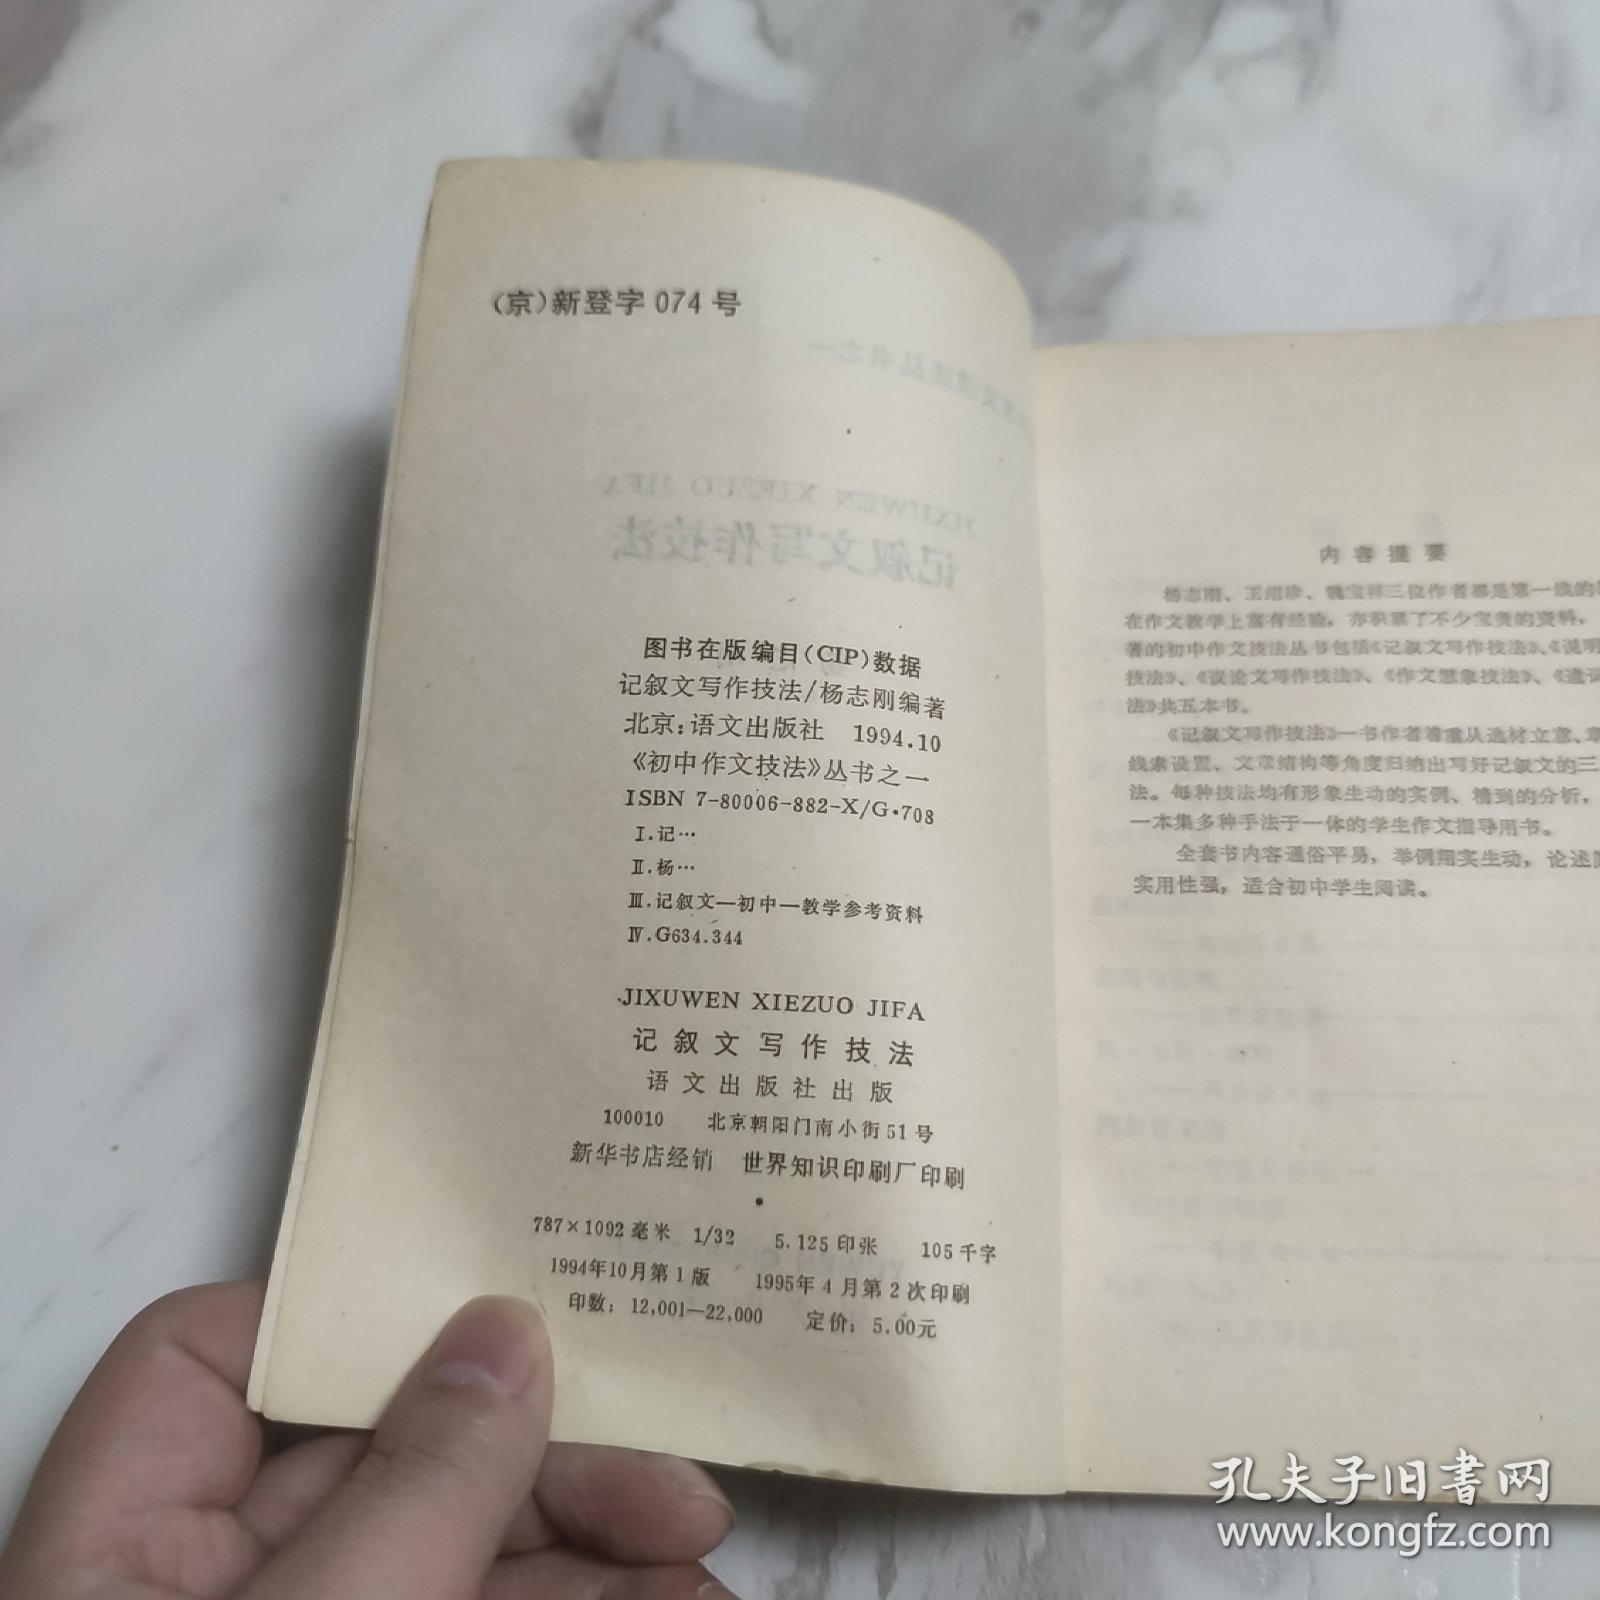 (京)新登字 074 号
图书在版编目(CIP)数据
记叙文写作技法/杨志刚编著
北京:语文出版社 1994.10
《初中作文技法》丛书之一
ISBN 7-80006-882-X/G·708
Ⅰ.记…
Ⅱ.杨…
Ⅲ.记叙文—初中—教学参考资料
Ⅳ.G634.344
JIXUWEN XIEZUO JIFA
记叙文写作技法
语文出版社出版
100010 北京朝阳门南小街51号
新华书店经销 世界知识印刷厂印刷
787×1092毫米 1/32 5.125印张 105千字
1994年10月第1版 1995年4月第2次印刷
印数:12,001—22,000 定价:5.00元
内容提要
杨志刚、王绍珍、魏宝祥三位作者都是第一线的
在作文教学上富有经验,亦积累了不少宝贵的资料,
著的初中作文技法丛书包括《记叙文写作技法》、《说明
技法》、《议论文写作技法》、《作文想象技法》、《遣词
法》共五本书。
《记叙文写作技法》一书作者着重从选材立意、
线索设置、文章结构等角度归纳出写好记叙文的三
法。每种技法均有形象生动的实例、精到的分析,
一本集多种手法于一体的学生作文指导用书。
全套书内容通俗平易,举例翔实生动,论述
实用性强,适合初中学生阅读。
孔夫子旧书网
www.kongfz.com